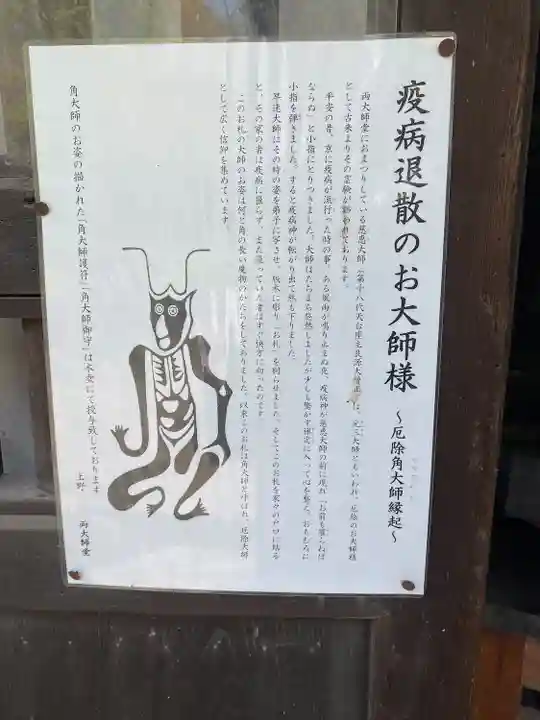 疫病退散のお大師様 ～厄除角大師縁起～
両大師堂におまつりしている慈恵大師(第十八代天台座主良源大僧正)は、元三大師ともいわれ、厄除のお大師様
として古来よりその霊験が謳われております。
平安の昔、京に疫病が流行った時の事、ある風雨が鳴り止まぬ夜、疫病神が慈恵大師の前に現れ「お前を襲わねば
ならぬ」と小指にとりつきました。大師はたちまち発熱しましたが少しも驚かず禅定に入って心を整え、おもむろに
小指を弾きました。すると疫病神が転がり出て熱も下りました。
早速大師はその時の姿を弟子に写させ、版木に彫り「お札」を刷らせました。そしてこのお札を家々の戸口に貼る
と、その家の者は疫病に罹らず、また罹っていた者はすぐ快方に向ったのです
このお札の大師のお姿は何と角の長い魔物のかたちをしておりました。以来このお札は角大師と呼ばれ、厄除大師
として広く信仰を集めています。
角大師のお姿の描かれた「角大師護符」「角大師御守」は本堂にて授与致しております
上野 両大師堂